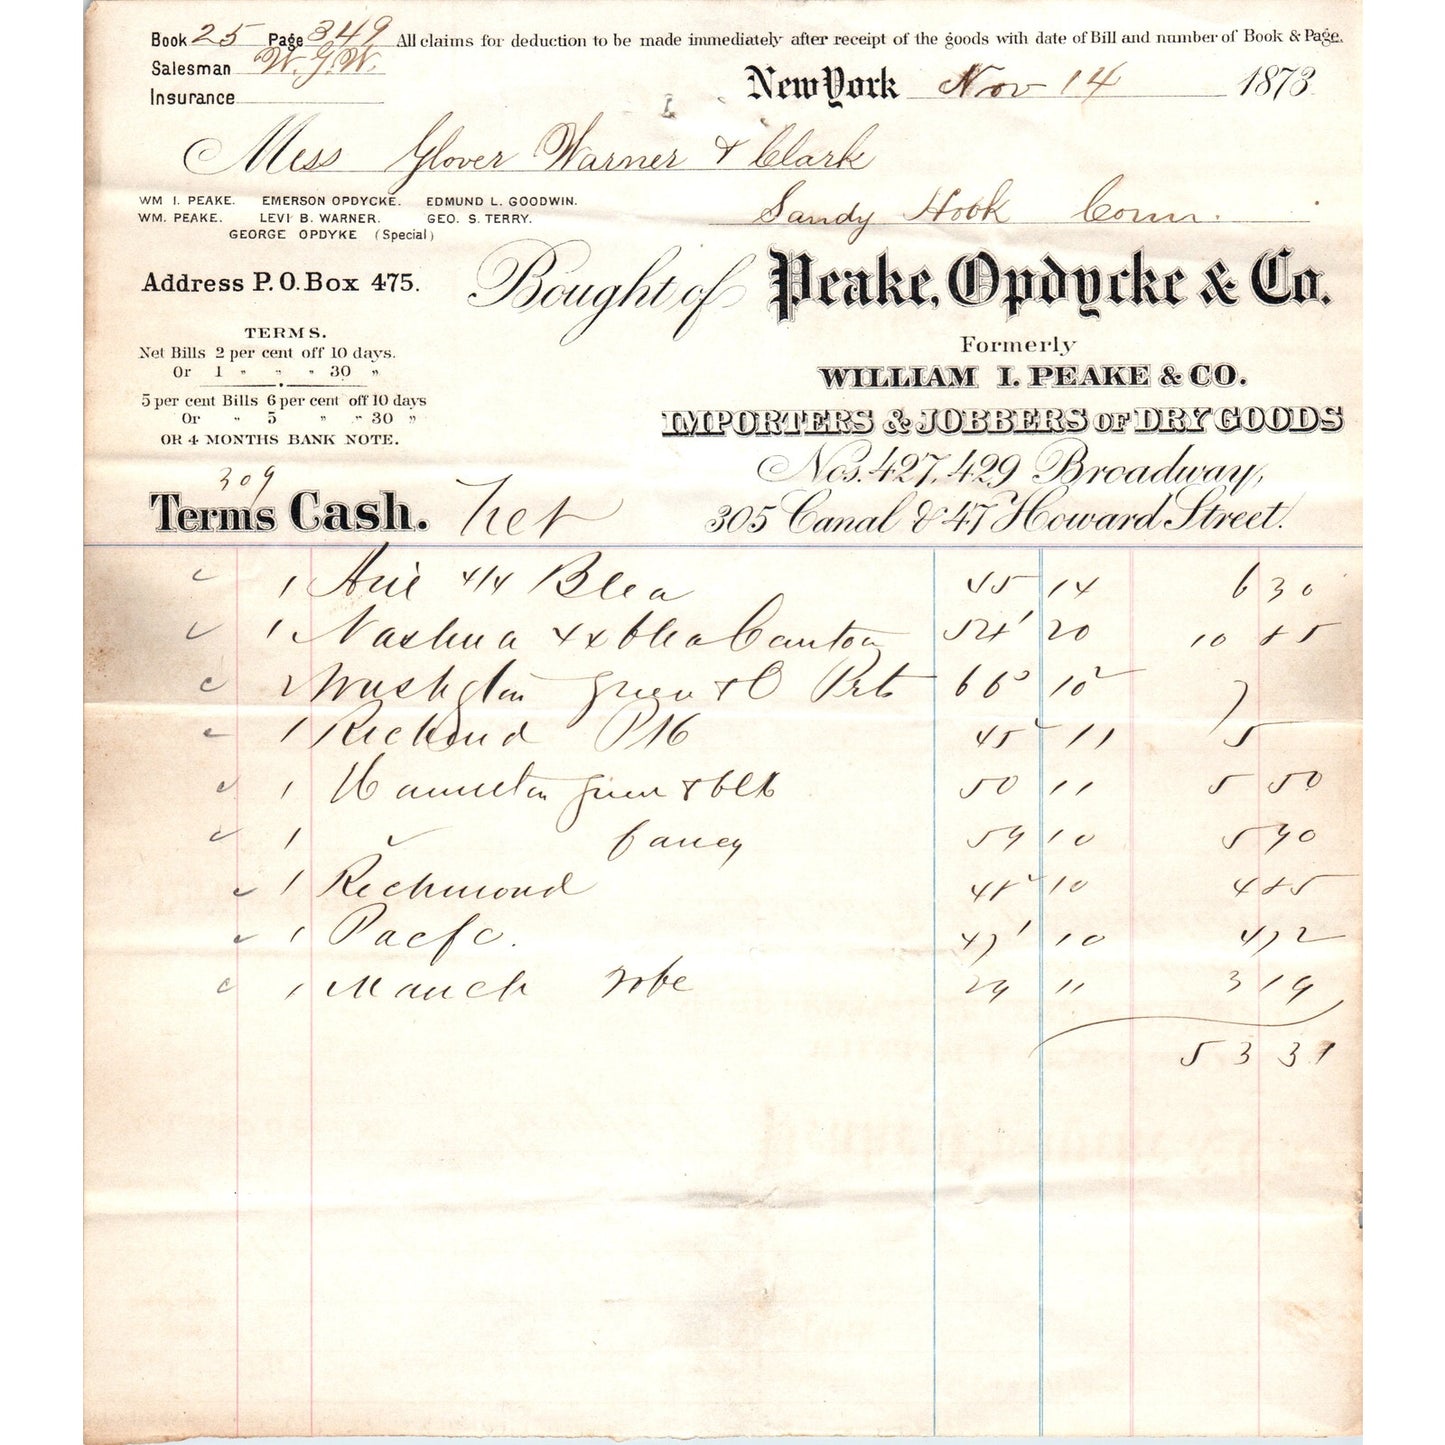 Book 25 Page 349 All claims for deduction to be made immediately after receipt of the goods with date of Bill and number of Book & Page.
Salesman W.G.W.
Insurance
New York Nov 14 1873
Mess Glover Warner & Clark
Sandy Hook Conn.
WM I. PEAKE. EMERSON OPDYCKE. EDMUND L. GOODWIN.
WM. PEAKE. LEVI B. WARNER. GEO. S. TERRY.
GEORGE OPDYKE (Special)
Address P.O. Box 475.
Bought of Peake, Opdycke & Co.
Formerly
WILLIAM I. PEAKE & CO.
IMPORTERS & JOBBERS OF DRY GOODS
Nos. 427, 429 Broadway,
305 Canal & 47 Howard Street.
TERMS.
Net Bills 2 per cent off 10 days.
Or 1 " " " 30 "
5 per cent Bills 6 per cent off 10 days
Or " 5 " " 30 "
OR 4 MONTHS BANK NOTE.
309
Terms Cash. Net
1 4/4 Blea 45 14 6 30
1 Nashua Blea Canton 54 20 10 85
Green & O Prts 66 10
1 Richmond 45 11 5
1 Hamilton Green & blk 50 11 5 50
1 " fancy 59 10 5 90
1 Richmond 48 10 4 85
1 Pacfc. 47 10 4 72
1 Manch robe 29 11 3 19
53 31